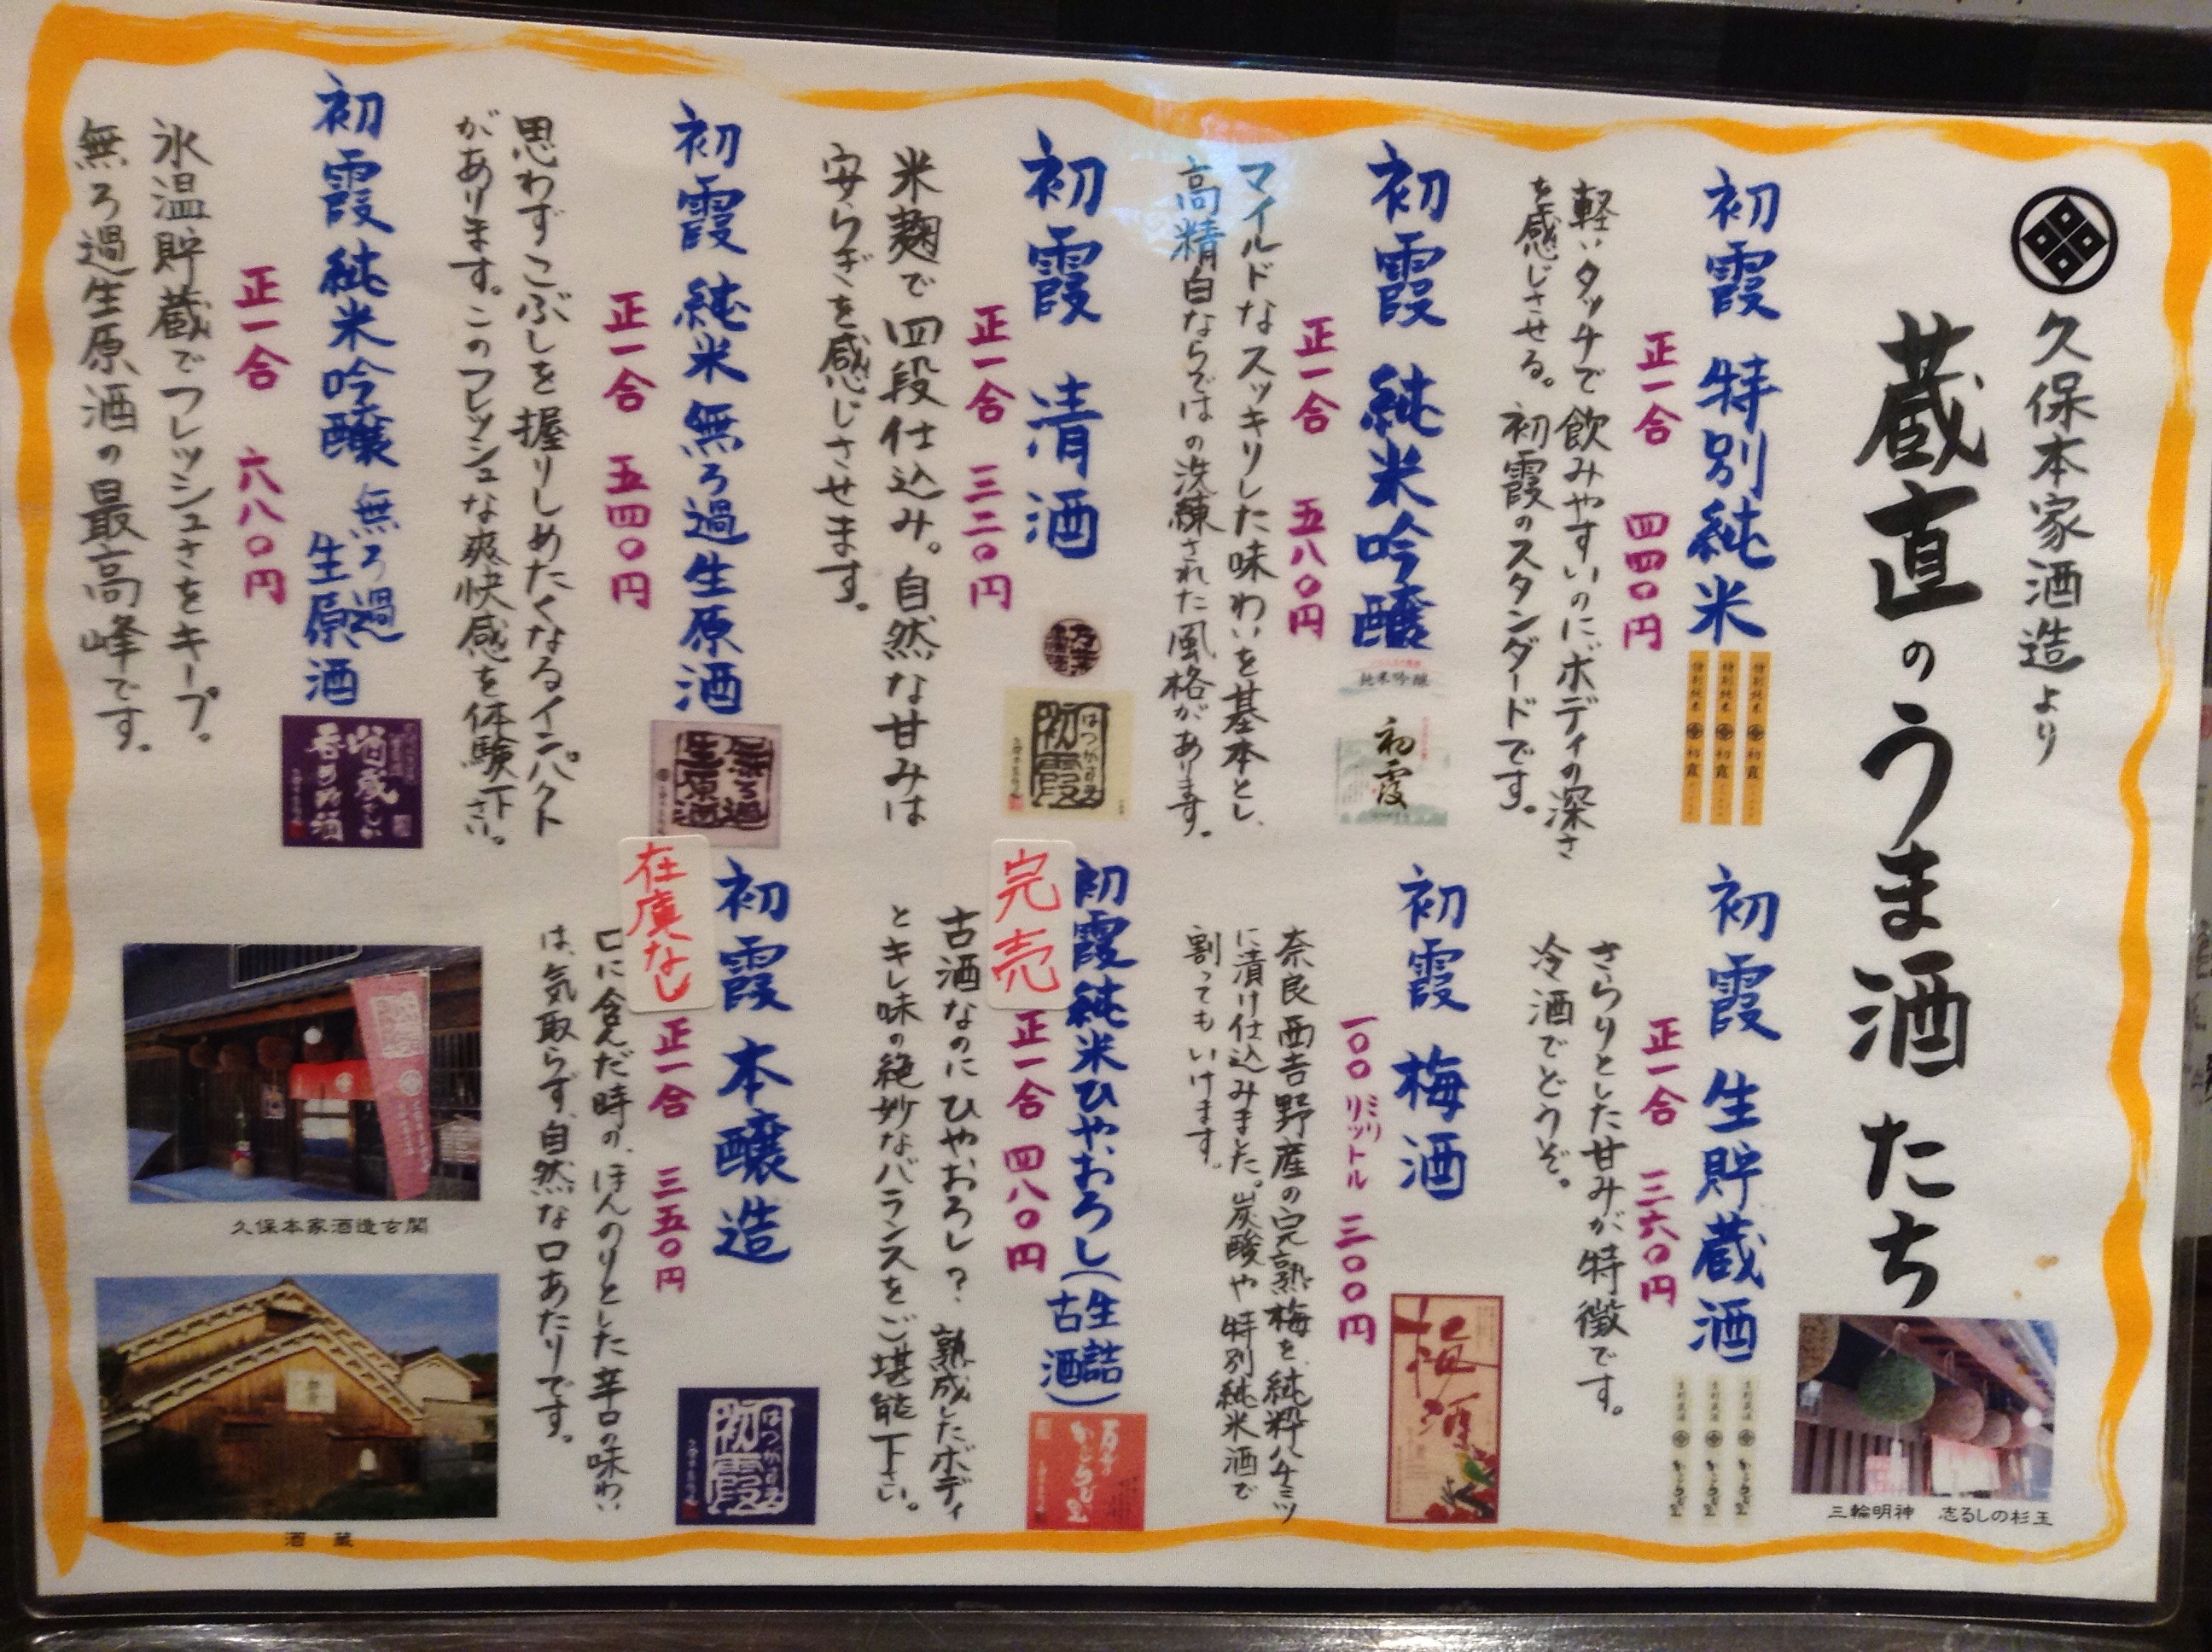 久保本家酒造より
蔵直のうま酒たち
初霞 特別純米
正一合 四四〇円
軽いタッチで飲みやすいのにボディの深さ
を感じさせる。初霞のスタンダードです。
初霞 純米吟醸
正一合 五八〇円
マイルドなスッキリした味わいを基本とし、
高精白ならではの洗練された風格があります。
純米吟醸
初霞
初霞 清酒
正一合 三二〇円
米麹で四段仕込み。自然な甘みは
安らぎを感じさせます。
はつがすみ
初霞
初霞 純米 無ろ過生原酒
正一合 五四〇円
思わずこぶしを握りしめたくなるインパクト
があります。このフレッシュな爽快感を体験下さい。
無ろ過
生原酒
初霞 純米吟醸 無ろ過
生原酒
正一合 六八〇円
氷温貯蔵でフレッシュさをキープ。
無ろ過生原酒の最高峰です。
初霞 生貯蔵酒
正一合 三六〇円
さらりとした甘みが特徴です。
冷酒でどうぞ。
初霞 梅酒
一〇〇ミリリットル 三〇〇円
奈良西吉野産の完熟梅を純粋ハチミツ
に漬け仕込みました。炭酸や特別純米酒で
割ってもいけます。
梅酒
初霞純米ひやおろし(生詰
古酒)
完売
正一合 四八〇円
古酒なのにひやおろし？ 熟成したボディ
とキレ味の絶妙なバランスをご堪能下さい。
初霞 本醸造
在庫なし
正一合 三五〇円
口に含んだ時の、ほんのりとした辛口の味わい
は、気取らず、自然な口あたりです。
はつがすみ
初霞
三輪明神 志るしの杉玉
久保本家酒造玄関
酒蔵